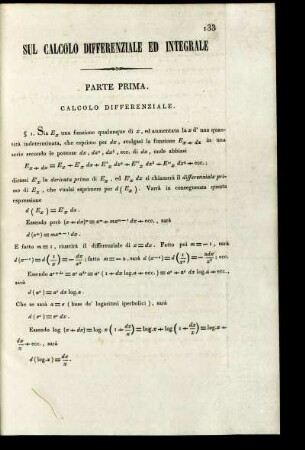 133
SUL CALCOLO DIFFERENZIALE ED INTEGRALE
PARTE PRIMA.
CALCOLO DIFFERENZIALE.
§ 1. Sia Eₓ una funzione qualunque di x, ed aumentata la x d' una quan-
tità indeterminata, che esprimo per dx, svolgasi la funzione Eₓ₊dₓ in una
serie secondo le potenze dx, dx², dx³, ecc. di dx, onde abbiasi
dicissi E'ₓ la derivata prima di Eₓ, ed E'ₓ dx si chiamerà il differenziale pri-
mo di Eₓ, che vuolsi esprimere per d(Eₓ). Varrà in conseguenza questa
espressione
d(Eₓ) = E'ₓ dx.
Essendo però (x+dx)ᵐ = xᵐ + mxᵐ⁻¹ dx + ecc., sarà
d(xᵐ) = mxᵐ⁻¹ dx.
E fatto m=1, riuscirà il differenziale di x = dx. Fatto poi m=−1, sarà
d(x⁻¹) = d(1/x) = −dx/x²; fatto m=−n, sarà d(x⁻ⁿ) = d(1/xⁿ) = −ndx/xⁿ⁺¹ ecc.
Essendo aˣ⁺ᵈˣ = aˣ aᵈˣ = aˣ (1 + dx log.a + ecc.) = aˣ + aˣ dx log.a + ecc.,
sarà
d(aˣ) = aˣ dx log.a
Che se sarà a=e (base de' logaritmi iperbolici), sarà
d(eˣ) = eˣ dx.
Essendo log.(x+dx) = log.x(1 + dx/x) = log.x + log(1 + dx/x) = log.x +
dx/x + ecc., sarà
d(log.x) = dx/x.